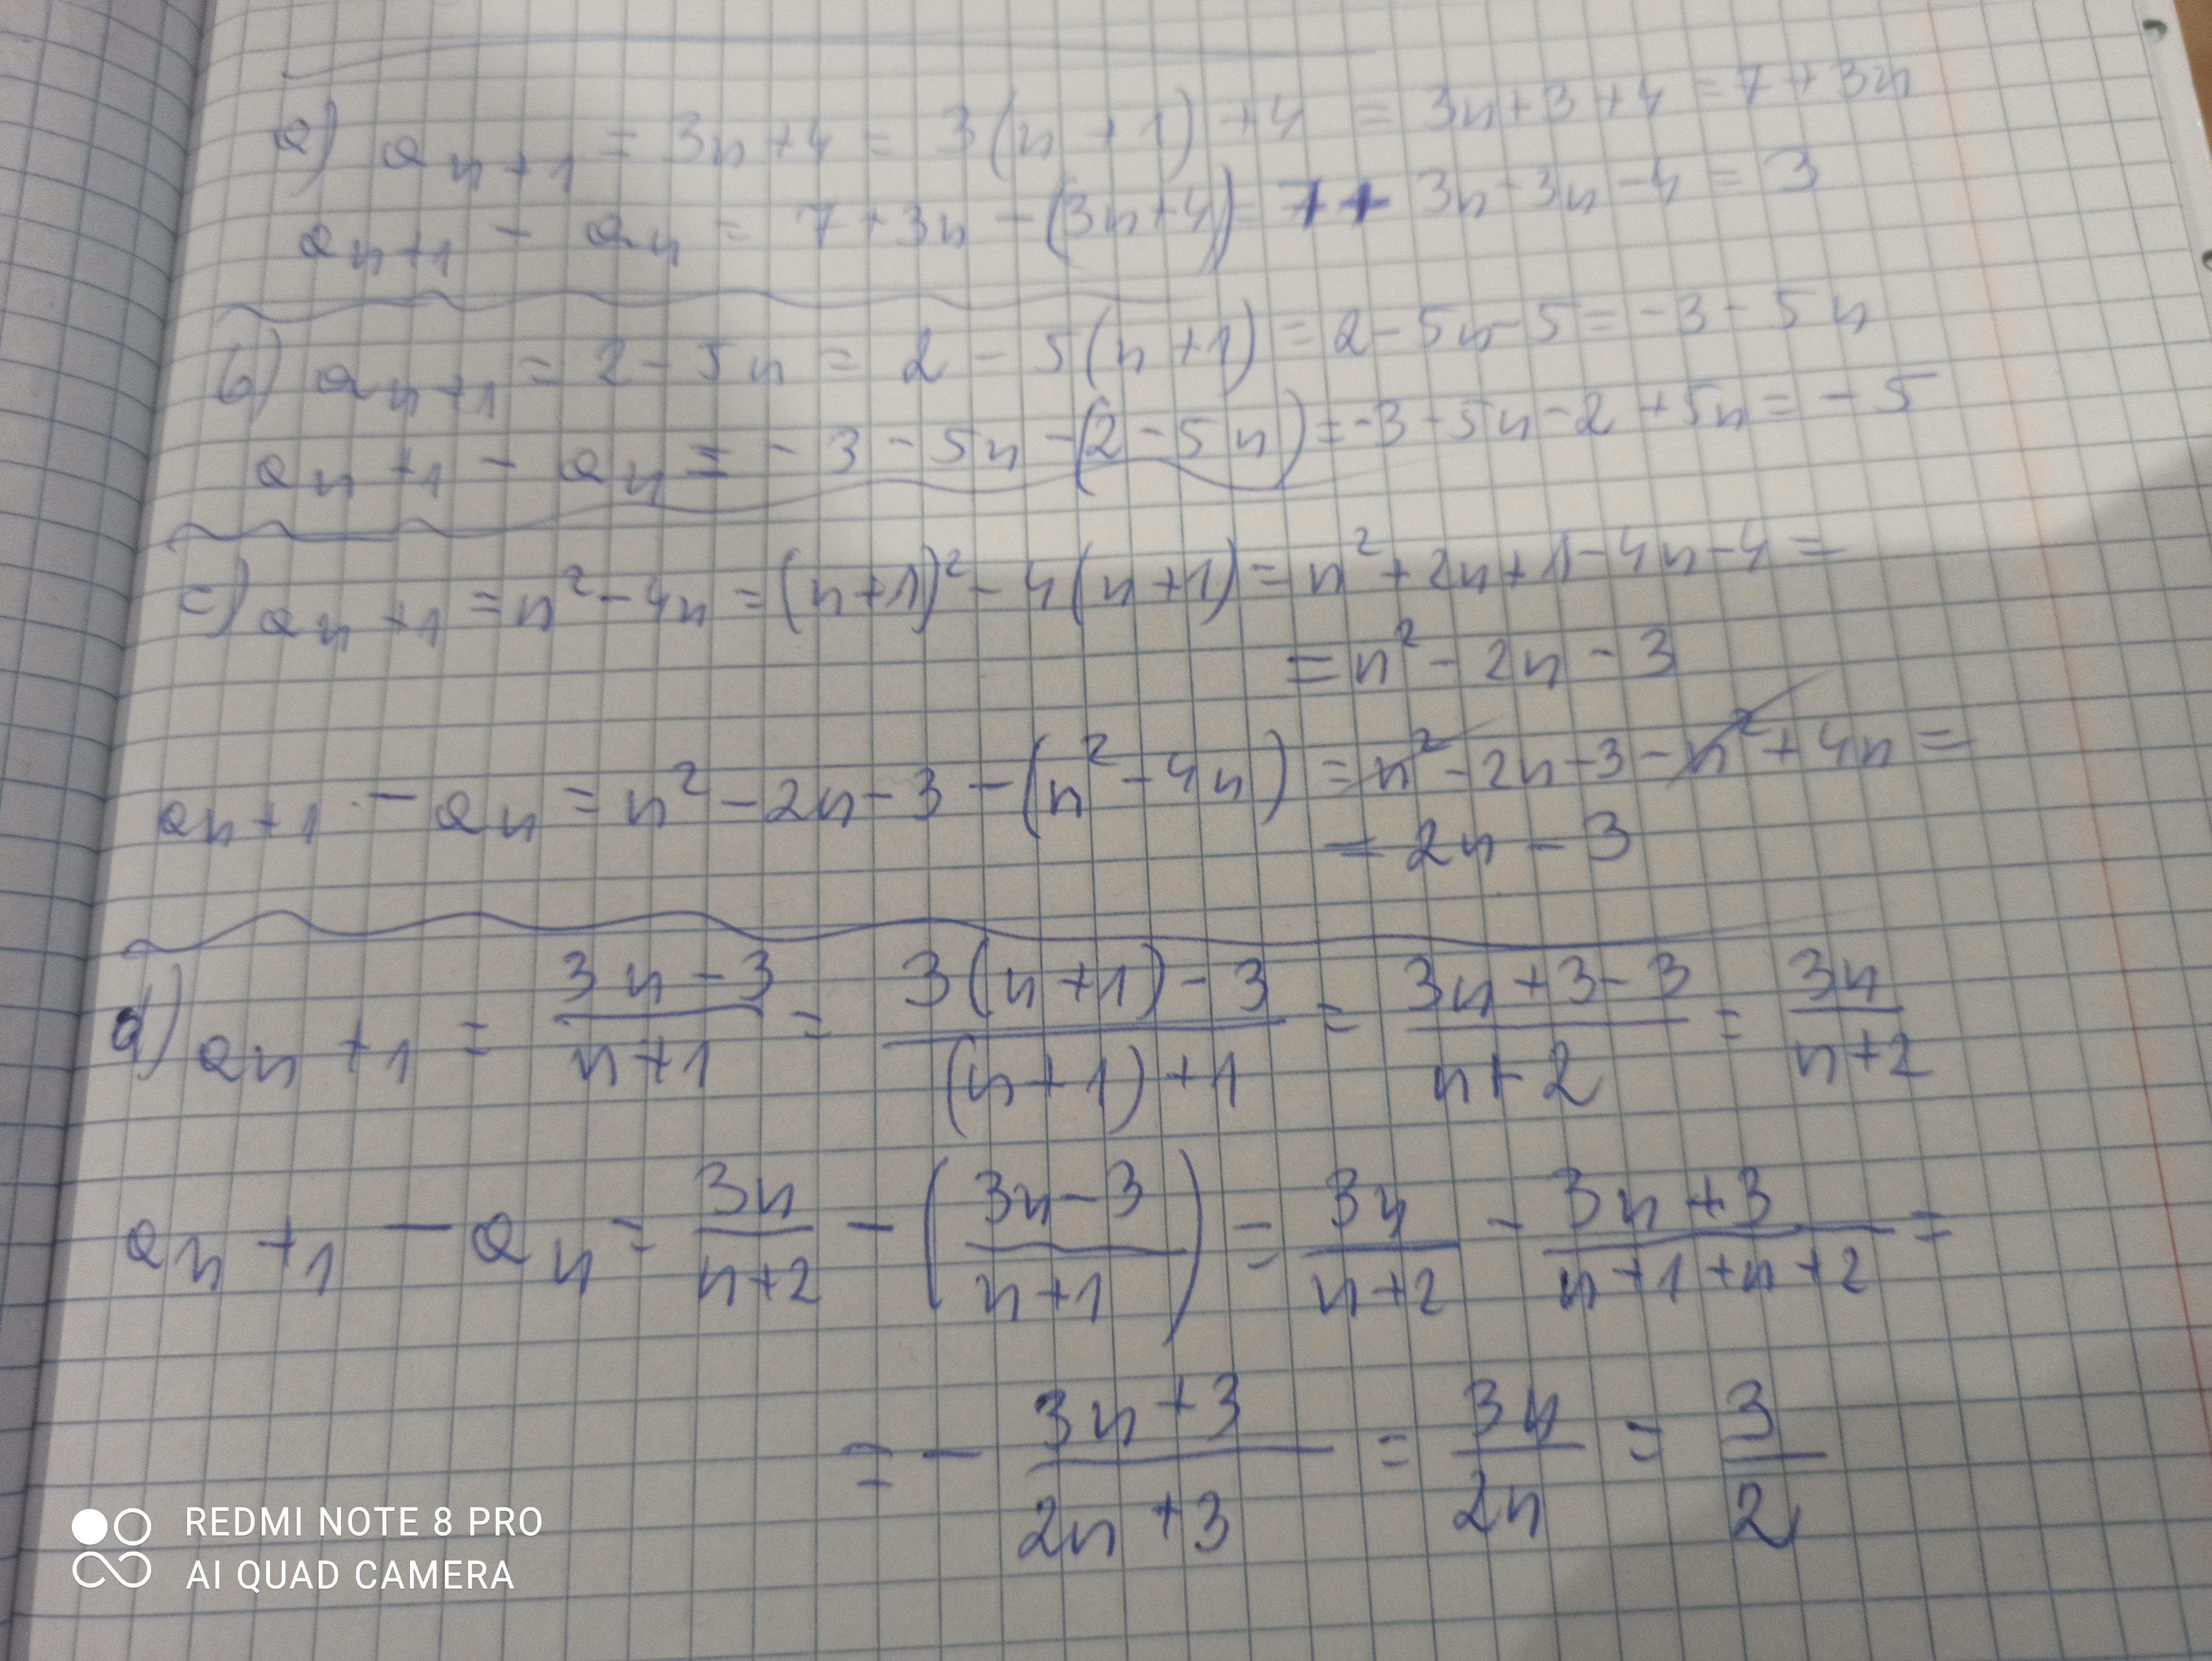 a) an+1 = 3n+4 = 3(n+1)+4 = 3n+3+4 = 7+3n
an+1 - an = 7+3n-(3n+4) = 7+3n-3n-4 = 3
b) an+1 = 2-5n = 2-5(n+1) = 2-5n-5 = -3-5n
an+1 - an = -3-5n-(2-5n) = -3-5n-2+5n = -5
c) an+1 = n²-4n = (n+1)²-4(n+1) = n²+2n+1-4n-4 =
= n²-2n-3
an+1 - an = n²-2n-3-(n²-4n) = n²-2n-3-n²+4n =
= 2n-3
d) an+1 = (3n-3)/(n+1) = (3(n+1)-3)/((n+1)+1) = (3n+3-3)/(n+2) = 3n/(n+2)
an+1 - an = 3n/(n+2) - ((3n-3)/(n+1)) = 3n/(n+2) - (3n+3)/(n+1+n+2) =
= - (3n+3)/(2n+3) = 3n/2n = 3/2
REDMI NOTE 8 PRO
AI QUAD CAMERA